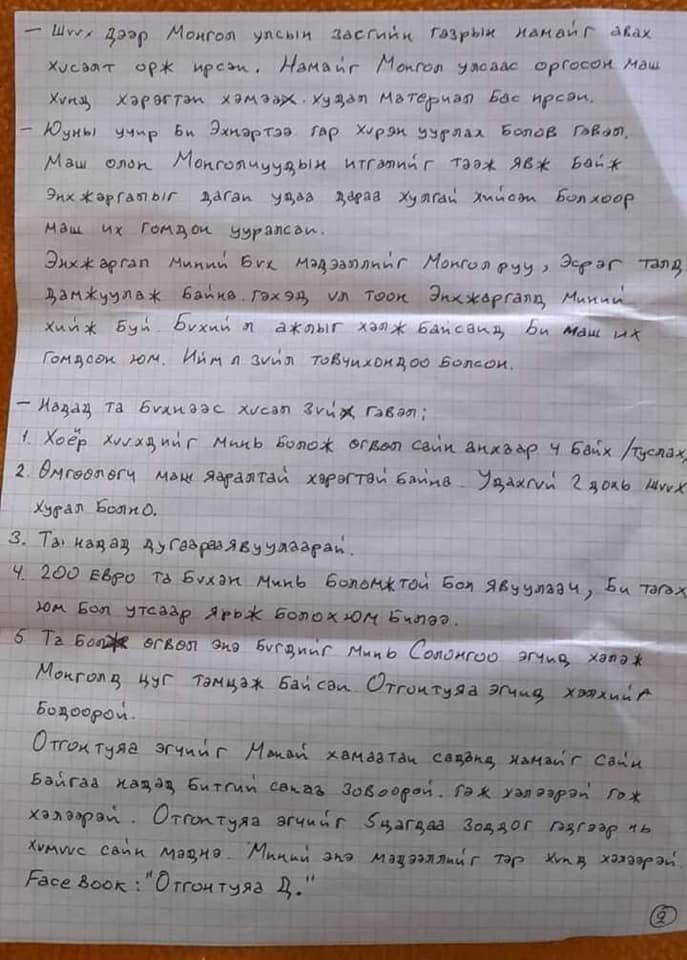 - Шүүх дээр Монгол улсын засгийн газрын намайг авах
хүсэлт орж ирсэн. Намайг Монгол улсаас оргосон маш
хүнд хэрэгтэн хэмээж худал материал бас ирсэн.
- Юуны учир би Эхнэртээ гар хүрэн уурлах болов гэвэл,
маш олон Монголчуудын итгэлийг тээж явж байж
Энхжаргалыг даган удаа дараа хулгай хийсэн болхоор
маш их гомдон ууралсан.
Энхжаргал миний бүх мэдээллийг Монгол руу, Эсрэг талд
дамжуулаж байна гэхэд үл тоон Энхжаргалд миний
хийж буй бүхий л ажлыг хэлж байсанд би маш их
гомдсон юм. Ийм л зүйл товчихондоо болсон.
- Надад та бүхнээс хүсэл зүйл гэвэл;
1. Хоёр хүүхдийг минь болож өгвөл сайн анхаарч байх /туслах,
2. Өмгөөлөгч маш яаралтай хэрэгтэй байна. Удахгүй 2 дохь шүүх
хурал болно.
3. Та надад дугаараа явуулаарай.
4. 200 евро та бүхэн минь боломжтой бол явуулаач, би тэгэх
юм бол утсаар ярьж болох юм билээ.
5. Та болж өгвөл энэ бүгдийг минь Солонгоо эгчид хэлэж
Монголд цуг тэмцэж байсан Отгонтуяа эгчид хэлхийг
бодоорой.
Отгонтуяа эгчийг Манай хамаатан саданд намайг сайн
байгаа надад битгий санаа зовоорой. гэж хэлээрэй гэж
хэлээрэй. Отгонтуяа эгчийг 5цагдаа зоддог гэдгээр нь
хүмүүс сайн мэднэ. Миний энэ мэдээллийг тэр хүнд хэлээрэй.
Face Book: "Отгонтуяа Д."
2